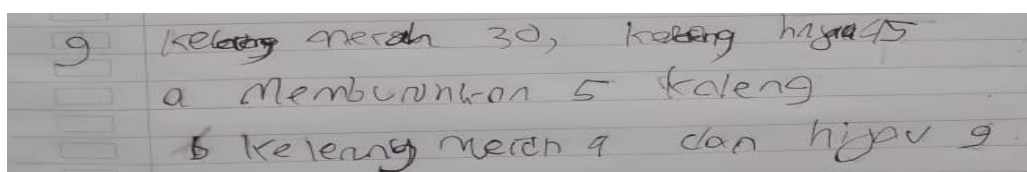 9 Keleng merah 30, Keleng hijau 45
a Membutuhkan 5 Kaleng
b Kelereng merah 9 dan hijau 9